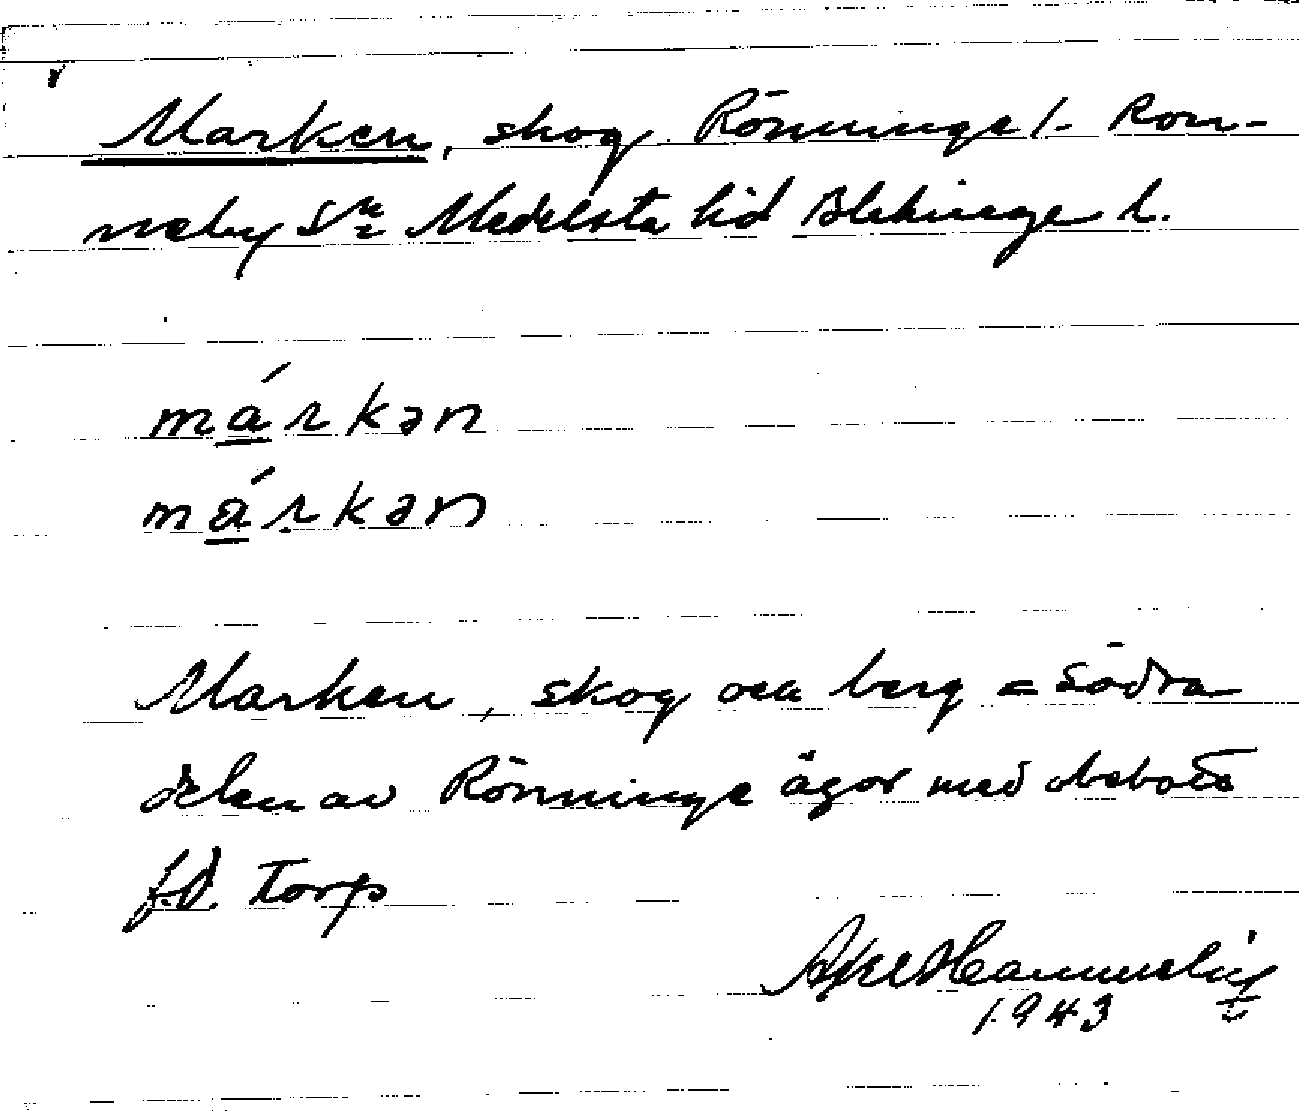 Marken, skog Rönninge /- Ron-
neby Sn Medelsta hd Blekinge l.
márkən
márkən
Marken, skog och berg = Södra
delen av Rönninge ägor med
f.d. torp
Axel
1943